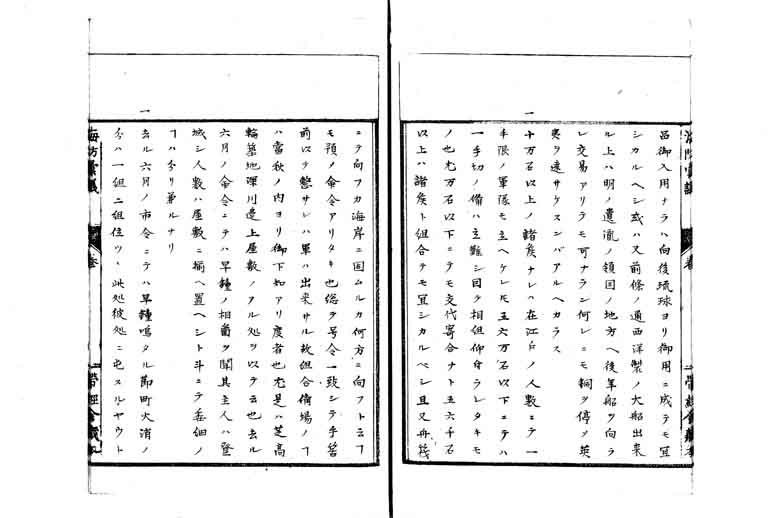 品御入用ナラハ向後琉球ヨリ御用ニ成テモ冝
シカルヘシ或ハ又前條ノ通西洋製ノ大船出来
ル上ハ明ノ遺流ノ領国ノ地方ヘ後年船ヲ向ラ
レ交易アリテモ可ナラン何レニモ銅ヲ停ヲ英
夷ヲ遠サケスンバアルヘカラス
一十万石以上ノ諸矦ナレハ在江戸ノ人數ニテ一
手限ノ軍隊モ立ヘケレ𪜈五六万石以下ニテハ
一手切ノ備ハ立難シ因ヲ相組仰身ラレタキモ
ノ也尤万石以下ニテモ交代寄合ナト五六千石
以上ハ諸矦ト組合テモ冝シカルベシ且又舟筏
ニテ向フカ海岸ニ固ムルカ何方ニ向フト云ヿ
モ預ノ命令アリタキ也総ヲ号令一致シテ手筈
前以テ整サレハ軍ハ出来サル故組合備場ノヿ
ハ當秋ノ内ヨリ御下知アリ度者也尤是ハ芝高
輪墓地深川邊上屋敷ノアル処ヲ以テ云也去ル
六月ノ命令ニテハ早鐘ノ相圖ヲ聞其主人ハ登
城シ人數ハ屋敷ニ揃ヘ置ヘシト斗ニテ委細ノ
ヿハ分リ兼ルナリ
一去ル六月ノ市令ニテハ早鐘鳴タル節町火消ノ
分ハ一組二組位ツヽ此処彼処ニ屯スルヤウト
海防彙議
巻